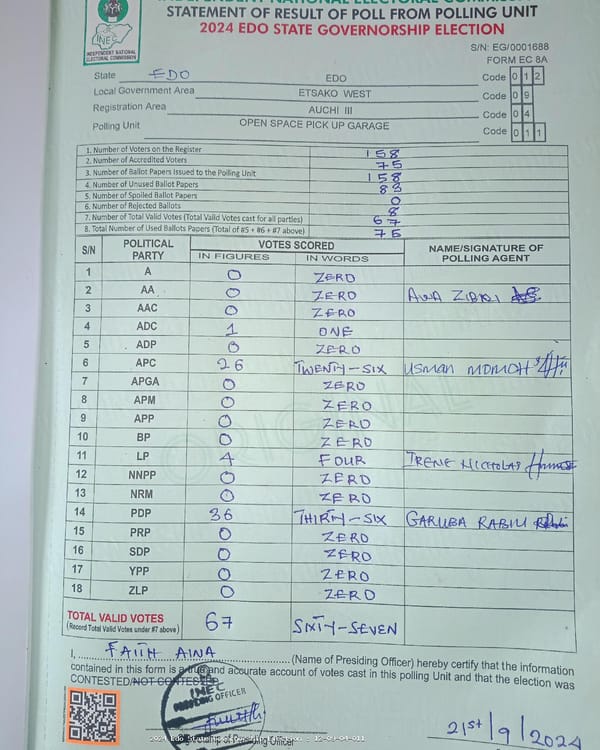 INDEPENDENT NATIONAL ELECTORAL COMMISSION
STATEMENT OF RESULT OF POLL FROM POLLING UNIT
2024 EDO STATE GOVERNORSHIP ELECTION
INEC
INDEPENDENT NATIONAL
ELECTORAL COMMISSION
S/N: EG/0001688
FORM EC 8A
State EDO EDO Code 0 1 2
Local Government Area ETSAKO WEST Code 0 9
Registration Area AUCHI III Code 0 4
Polling Unit OPEN SPACE PICK UP GARAGE Code 0 1 1
1. Number of Voters on the Register 158
2. Number of Accredited Voters 75
3. Number of Ballot Papers Issued to the Polling Unit 158
4. Number of Unused Ballot Papers 83
5. Number of Spoiled Ballot Papers 0
6. Number of Rejected Ballots 8
7. Number of Total Valid Votes (Total Valid Votes cast for all parties) 67
8. Total Number of Used Ballots Papers (Total of #5 + #6 + #7 above) 75
S/N POLITICAL PARTY VOTES SCORED NAME/SIGNATURE OF POLLING AGENT
IN FIGURES IN WORDS
1 A 0 ZERO
2 AA 0 ZERO AWA
3 AAC 0 ZERO
4 ADC 1 ONE
5 ADP 0 ZERO
6 APC 26 TWENTY-SIX USMAN MOMOH
7 APGA 0 ZERO
8 APM 0 ZERO
9 APP 0 ZERO
10 BP 0 ZERO
11 LP 4 FOUR IRENE NICHOLAS
12 NNPP 0 ZERO
13 NRM 0 ZERO
14 PDP 36 THIRTY-SIX GARUBA RABIU
15 PRP 0 ZERO
16 SDP 0 ZERO
17 YPP 0 ZERO
18 ZLP 0 ZERO
TOTAL VALID VOTES 67 SIXTY-SEVEN
(Record Total Valid Votes under #7 above)
I, FAITH AINA (Name of Presiding Officer) hereby certify that the information
contained in this form is a true and accurate account of votes cast in this polling Unit and that the election was
CONTESTED/NOT CONTESTED.
INEC
PRESIDING OFFICER
Signature of Presiding Officer
21st/9/2024